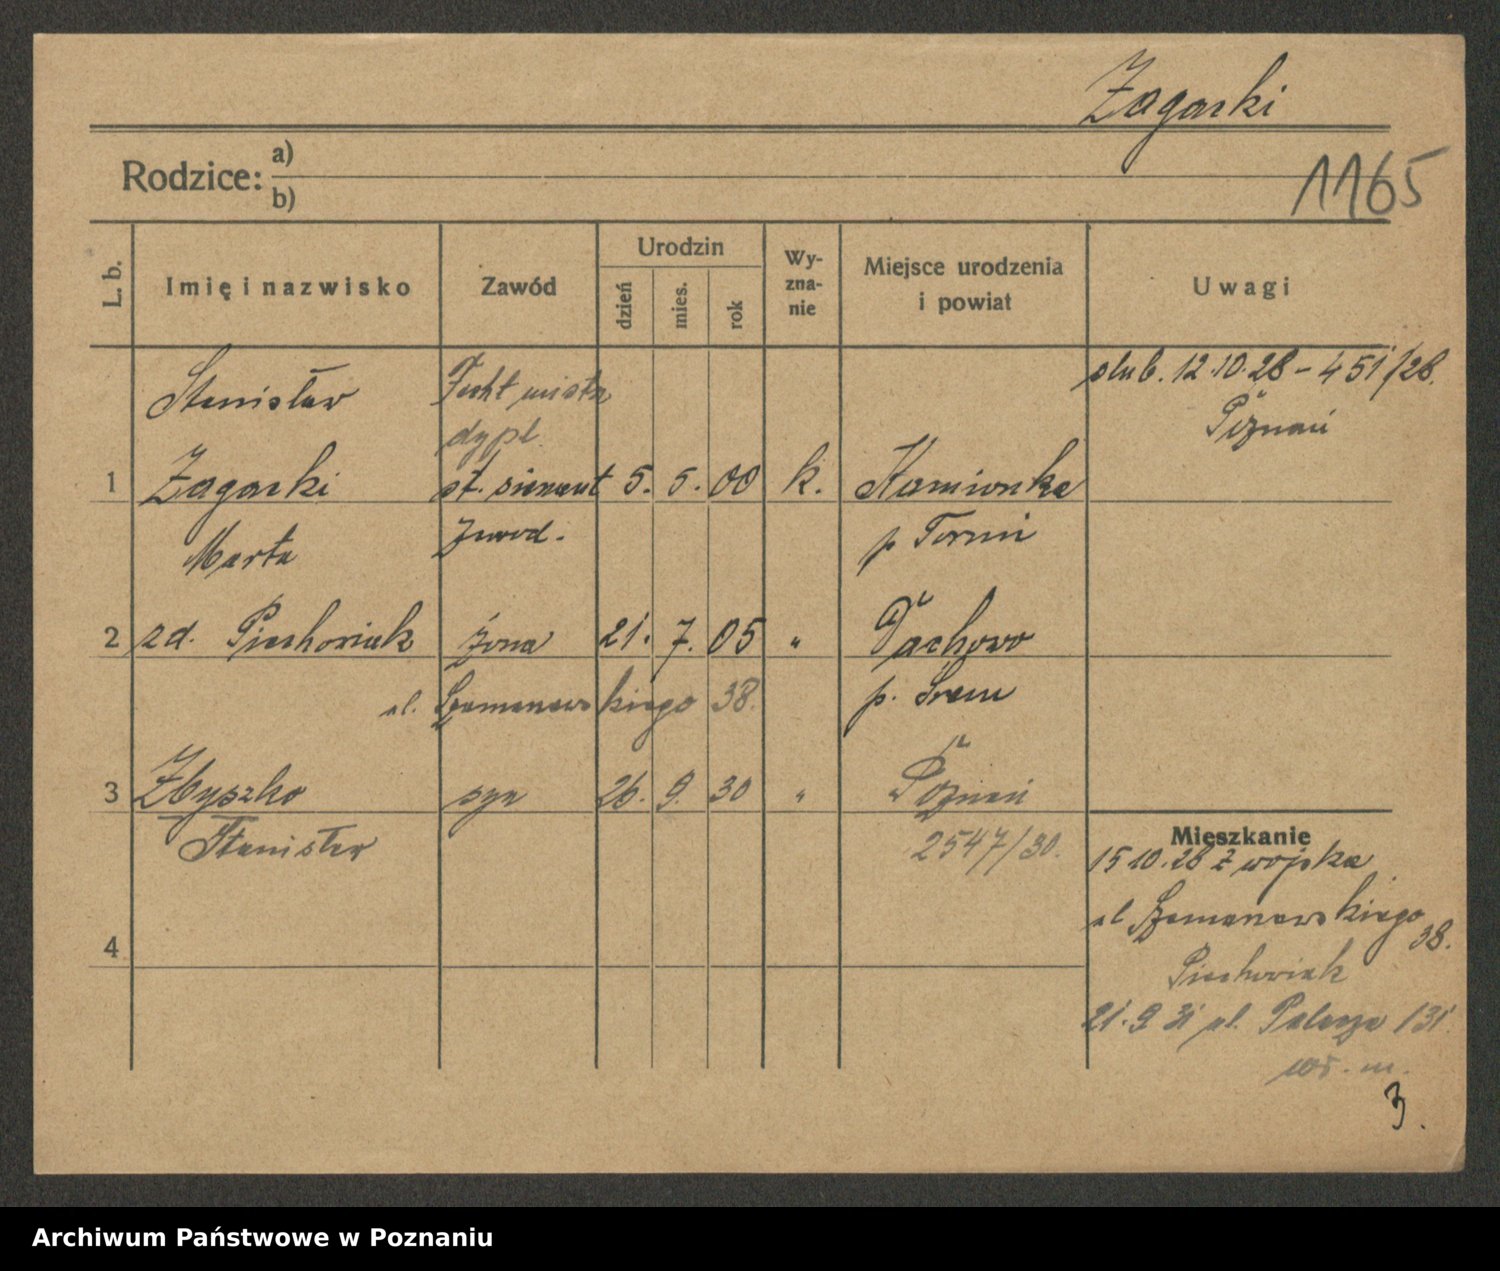 Zagarki
Rodzice: a)
b)
1165
L. b.
Imię i nazwisko
Zawód
Urodzin
dzień
mies.
rok
Wy-
zna-
nie
Miejsce urodzenia
i powiat
Uwagi
Stanisław
Fecht mistrz
dypl.
ślub. 12.10.28 – 451/28.
Poznań
1 Zagarki st. sierżant 5. 5. 00 k. Kamionka
Marta
zawod.
p Toruń
2 zd. Piechowiak żona 21. 7. 05 " Pachowo
ul. Szamarzewskiego 38.
p. Śrem
3 Zbyszko syn 26. 9. 30 " Poznań
Stanisław
2547/30.
Mieszkanie
15 10.28 z wojska
ul Szamarzewskiego 38.
Piechowiak
21.9 31 ul. Palacza 131
wł. m.
4
3.
Archiwum Państwowe w Poznaniu